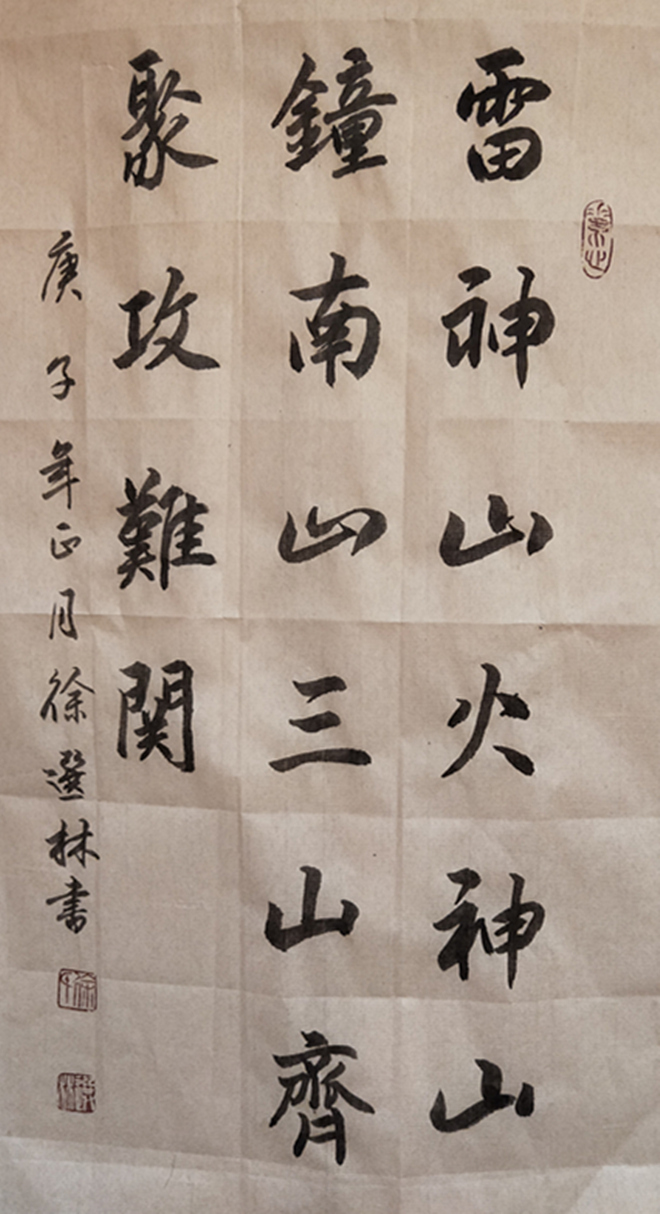 雷神山火神山
鐘南山三山齊
聚攻難関
庚子年正月徐選林书